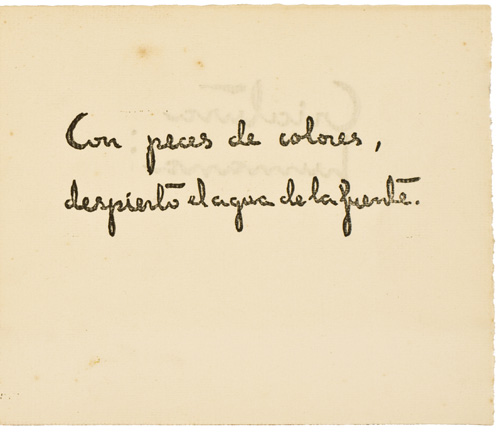 Con peces de colores,
despierto el agua de la fuente.